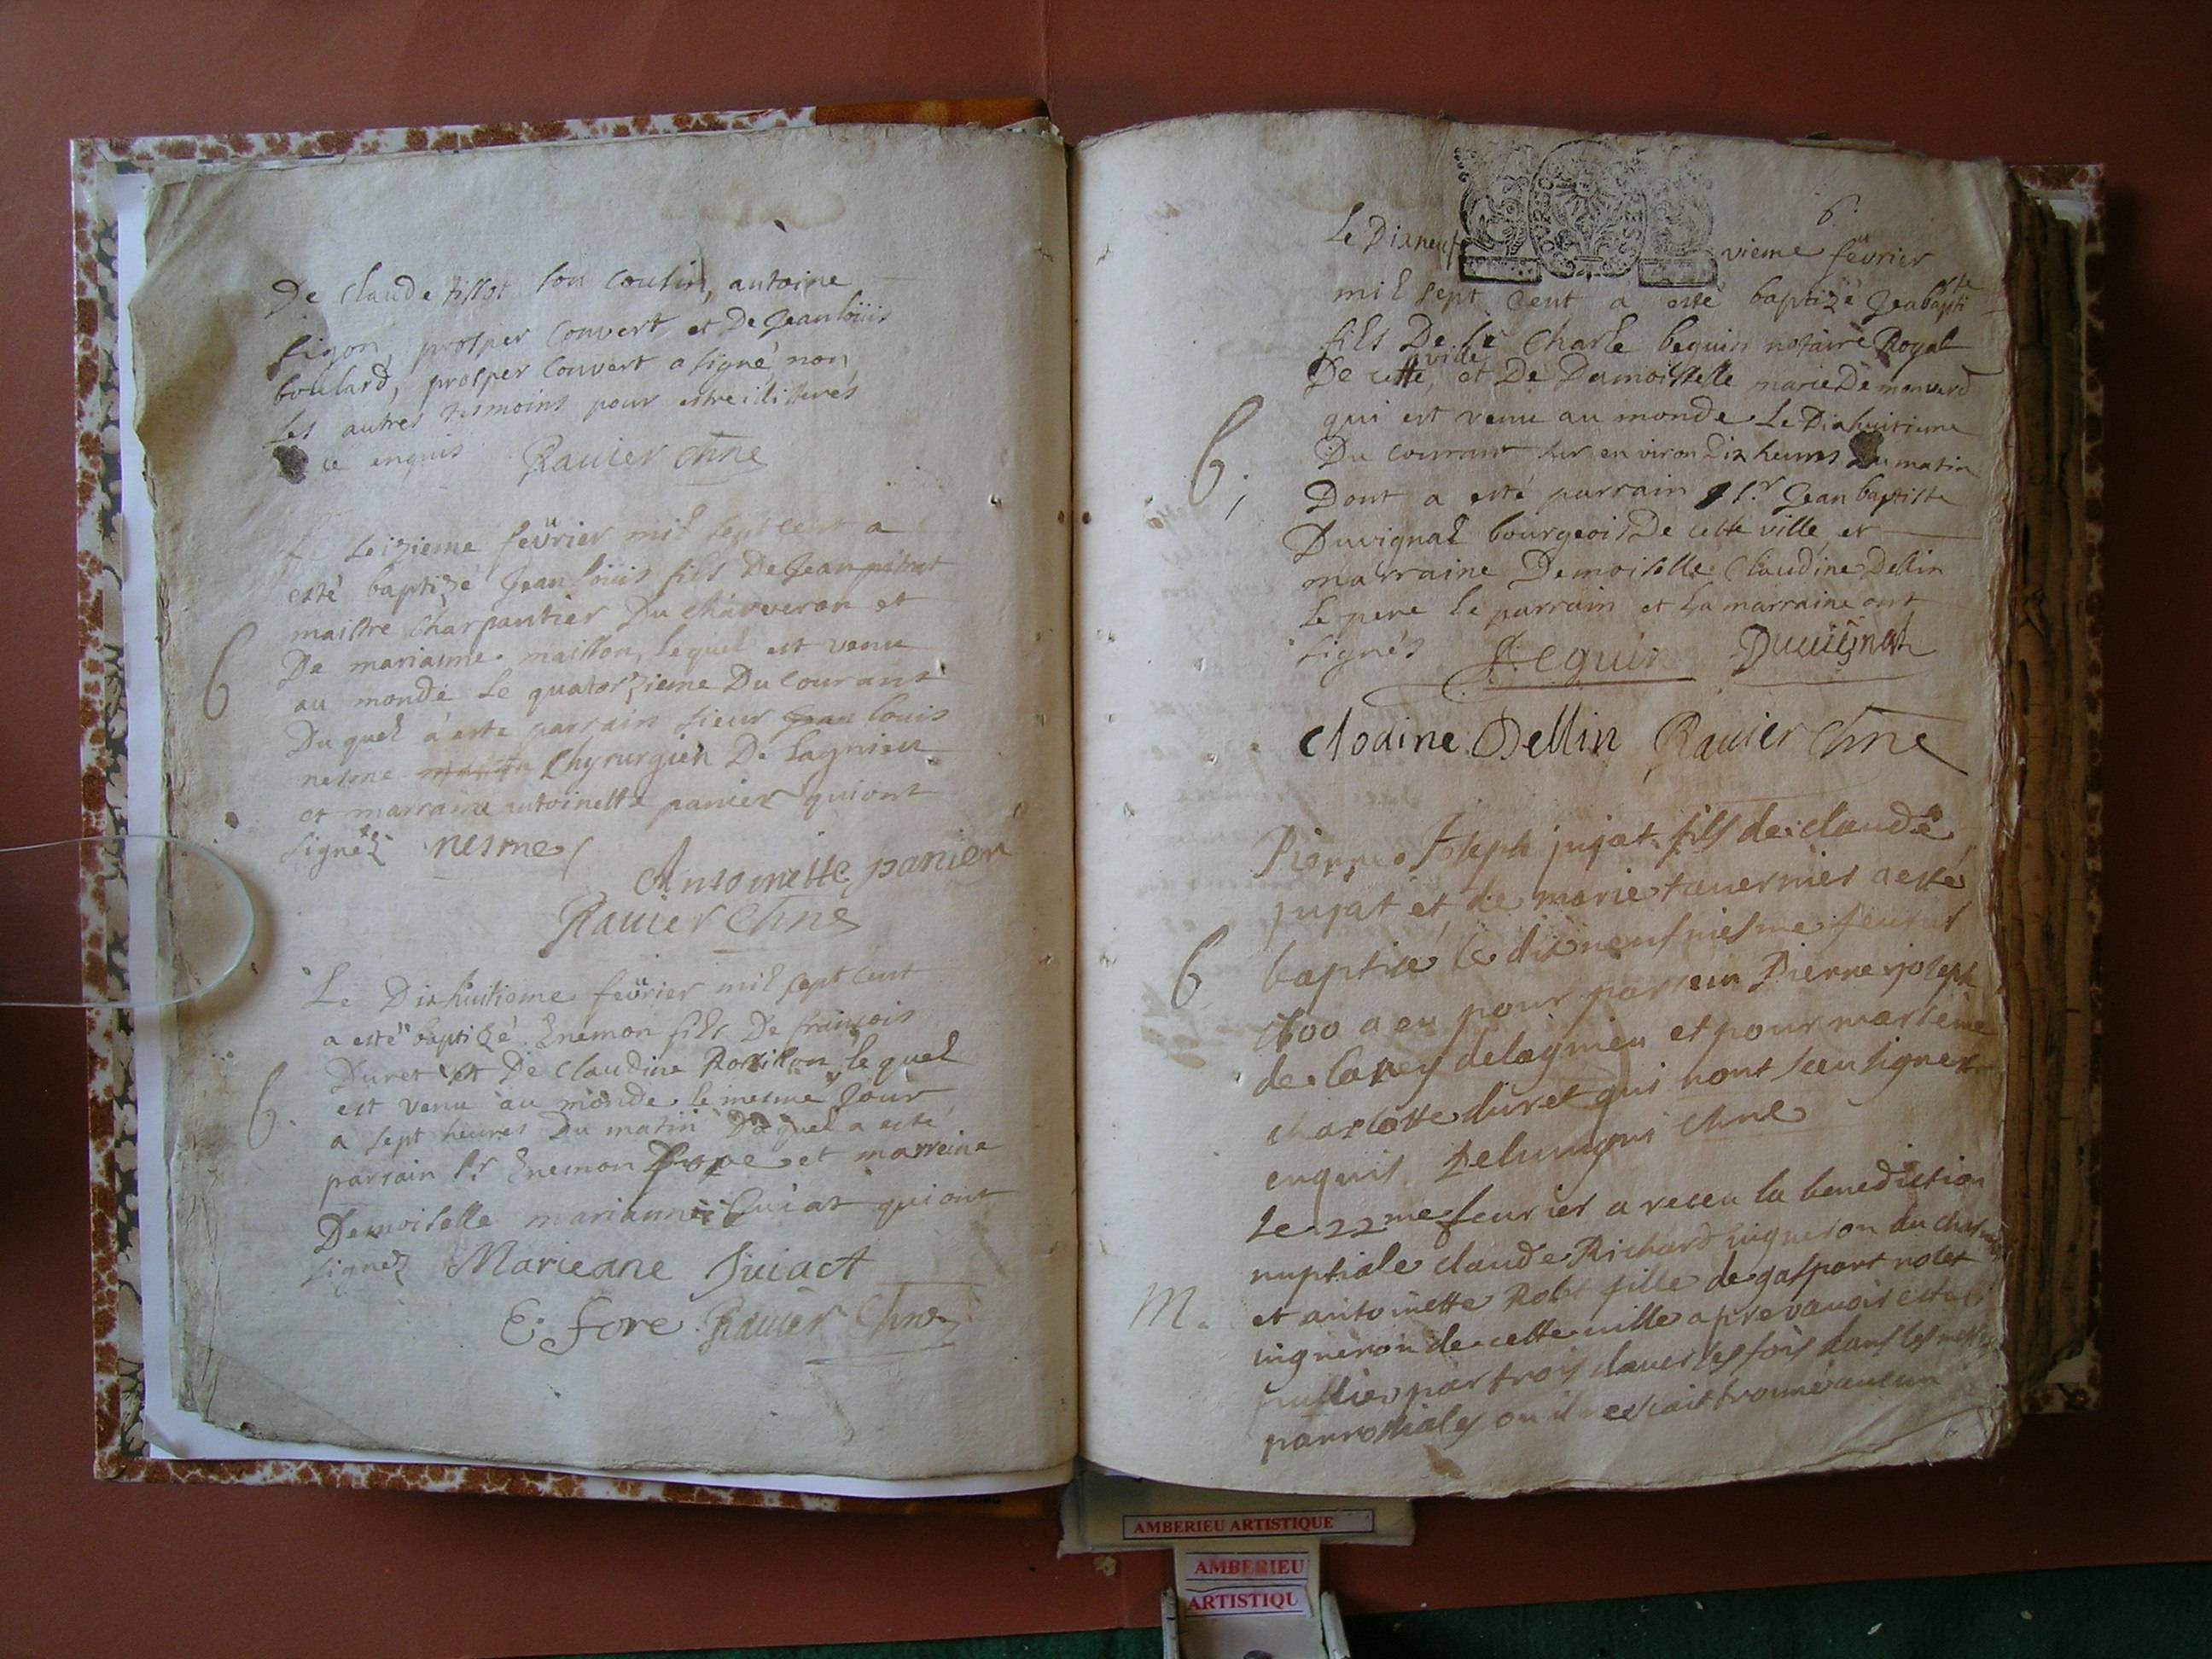 De Claude tissot son cousin, antoine
figon, prosper Convert, et De Jean loüis
boulard, prosper Convert a signé non
les autres tesmoins pour estre ilisterés
ce enquis Rauier Chne
Le seizieme feürier mil sept cent a
esté baptizé Jean loüis fils De Jean
maistre charpantier Du charveron et
De marianne maisson, lequel est venu
au monde le quatorzieme Du courant
Duquel a este parrain sieur Jean louis
nesme Chyrurgien De Lagnieu
et marraine antoinette panier qui ont
signéz nesme
Antoinette panier
Rauier Chne
Le Dixhuitieme feürier mil sept cent
a esté baptizé Enemon fils De françois
Duret et De Claudine lequel
est venu au monde le mesme Jour
a sept heures Du matin Duquel a esté
parrain sr Enemon fore et marreine
Demoiselle marianne Juiat qui ont
signez Marieane Juiact
E. fore Rauier Chne
6
6.
6.
Le Dixneuf vieme feürier
mil sept cent a esté baptizé Jeabapti
ste
fils De Sr Charle beguin notaire Royal
De cette ville, et De Demoisselle marie De monverd
qui est venu au monde Le Dixhuitieme
Du courant sur environ Dix heures Du matin
Dont a esté parrain Sr Jean baptiste
Duvignal bourgeois De cette ville et
marraine Demoiselle Claudine Dellin
Le pere le parrain et La marraine ont
signés Beguin Duuignal
Clodine Dellin Rauier Chne
6;
Pierre Joseph jujat fils de claude
jujat et de marie tauernier a esté
baptisé le dixneufviesme feurier
1700 a eu pour parrein Pierre joseph
de Corey delagnieu et pour marreine
charlotte duret qui nont sceu signer
enquis Chne
6
Le 22me feurier a receu la benediction
nuptiale claude Richard uigneron du
et antoinette Rolet fille de gaspart rolet
uigneron de cette uille apres auoir esté
publies par trois diuerses fois dans les messes
parrochiales ou il ne s'estait trouué aucun
M.
AMBERIEU ARTISTIQUE
AMBERIEU
ARTISTIQU